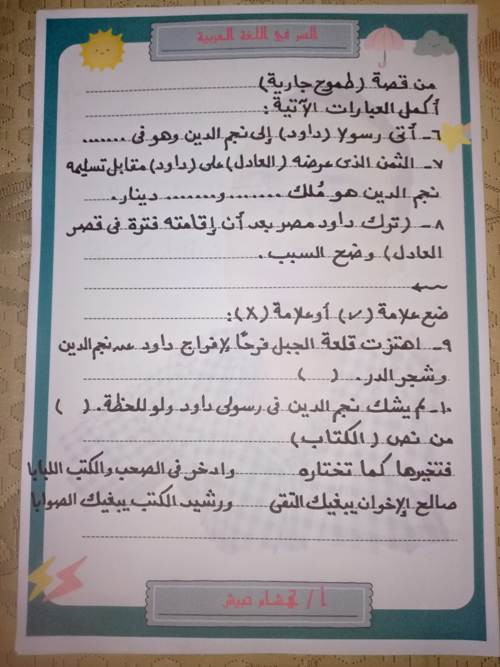 السر في اللغة العربية
من قصة (طموح جارية)
أكمل العبارات الآتية:
٦- أتى رسولا (داود) إلى نجم الدين وهو فى .......
٧- الثمن الذى عرضه (العادل) على (داود) مقابل تسليمه
نجم الدين هو مُلك ........ و........ دينار.
٨- (ترك داود مصر بعد أن إقامته فترة فى قصر
العادل) وضح السبب.
ضع علامة (√) أو علامة (X):
٩- اهتزت قلعة الجبل فرحًا لإفراج داود عن نجم الدين
وشجر الدر. ( )
١٠- لم يشك نجم الدين فى رسولى داود ولو للحظة. ( )
من نص (الكتاب)
فتخيرها كما تختاره وادخر فى الصحب والكتب اللبابا
صالح الإخوان يبغيك التقى ورشيد الكتب يبغيك الصوابا
أ / هشام حبيش